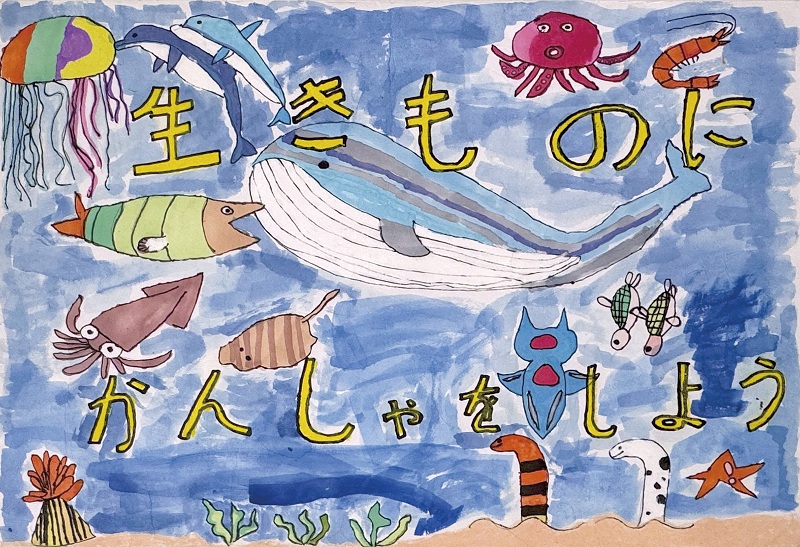 生きものに
かんしゃをしよう